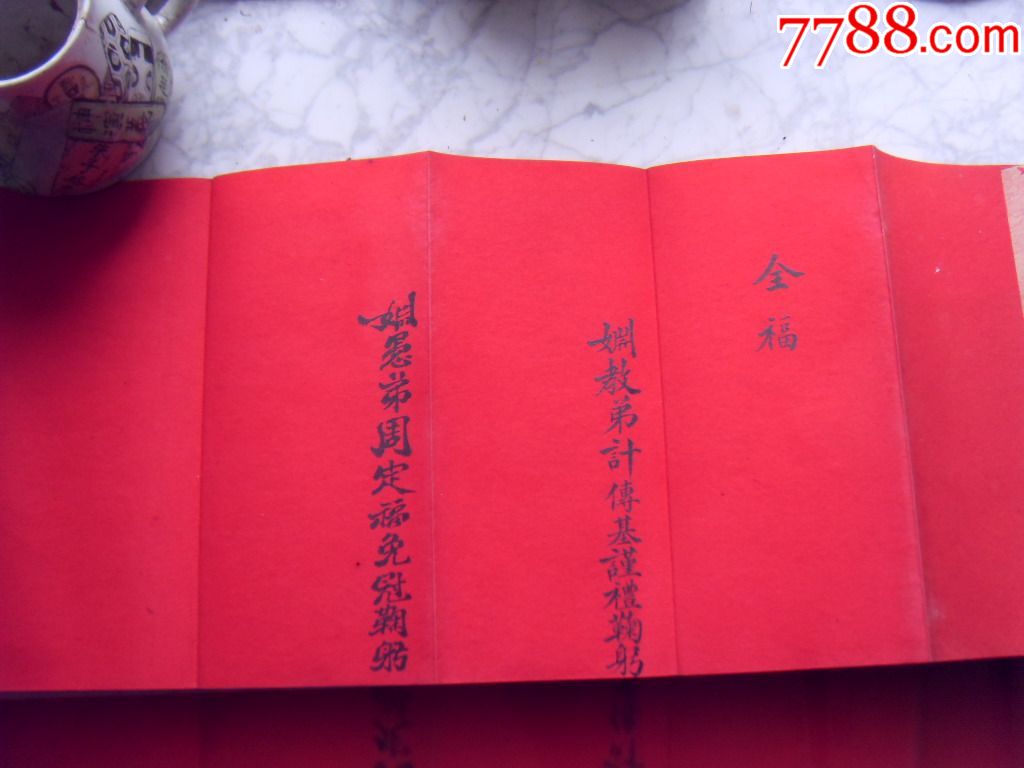 7788.com
全福
姻教弟計傳基謹禮鞠躬
姻愚弟周定福免冠鞠躬